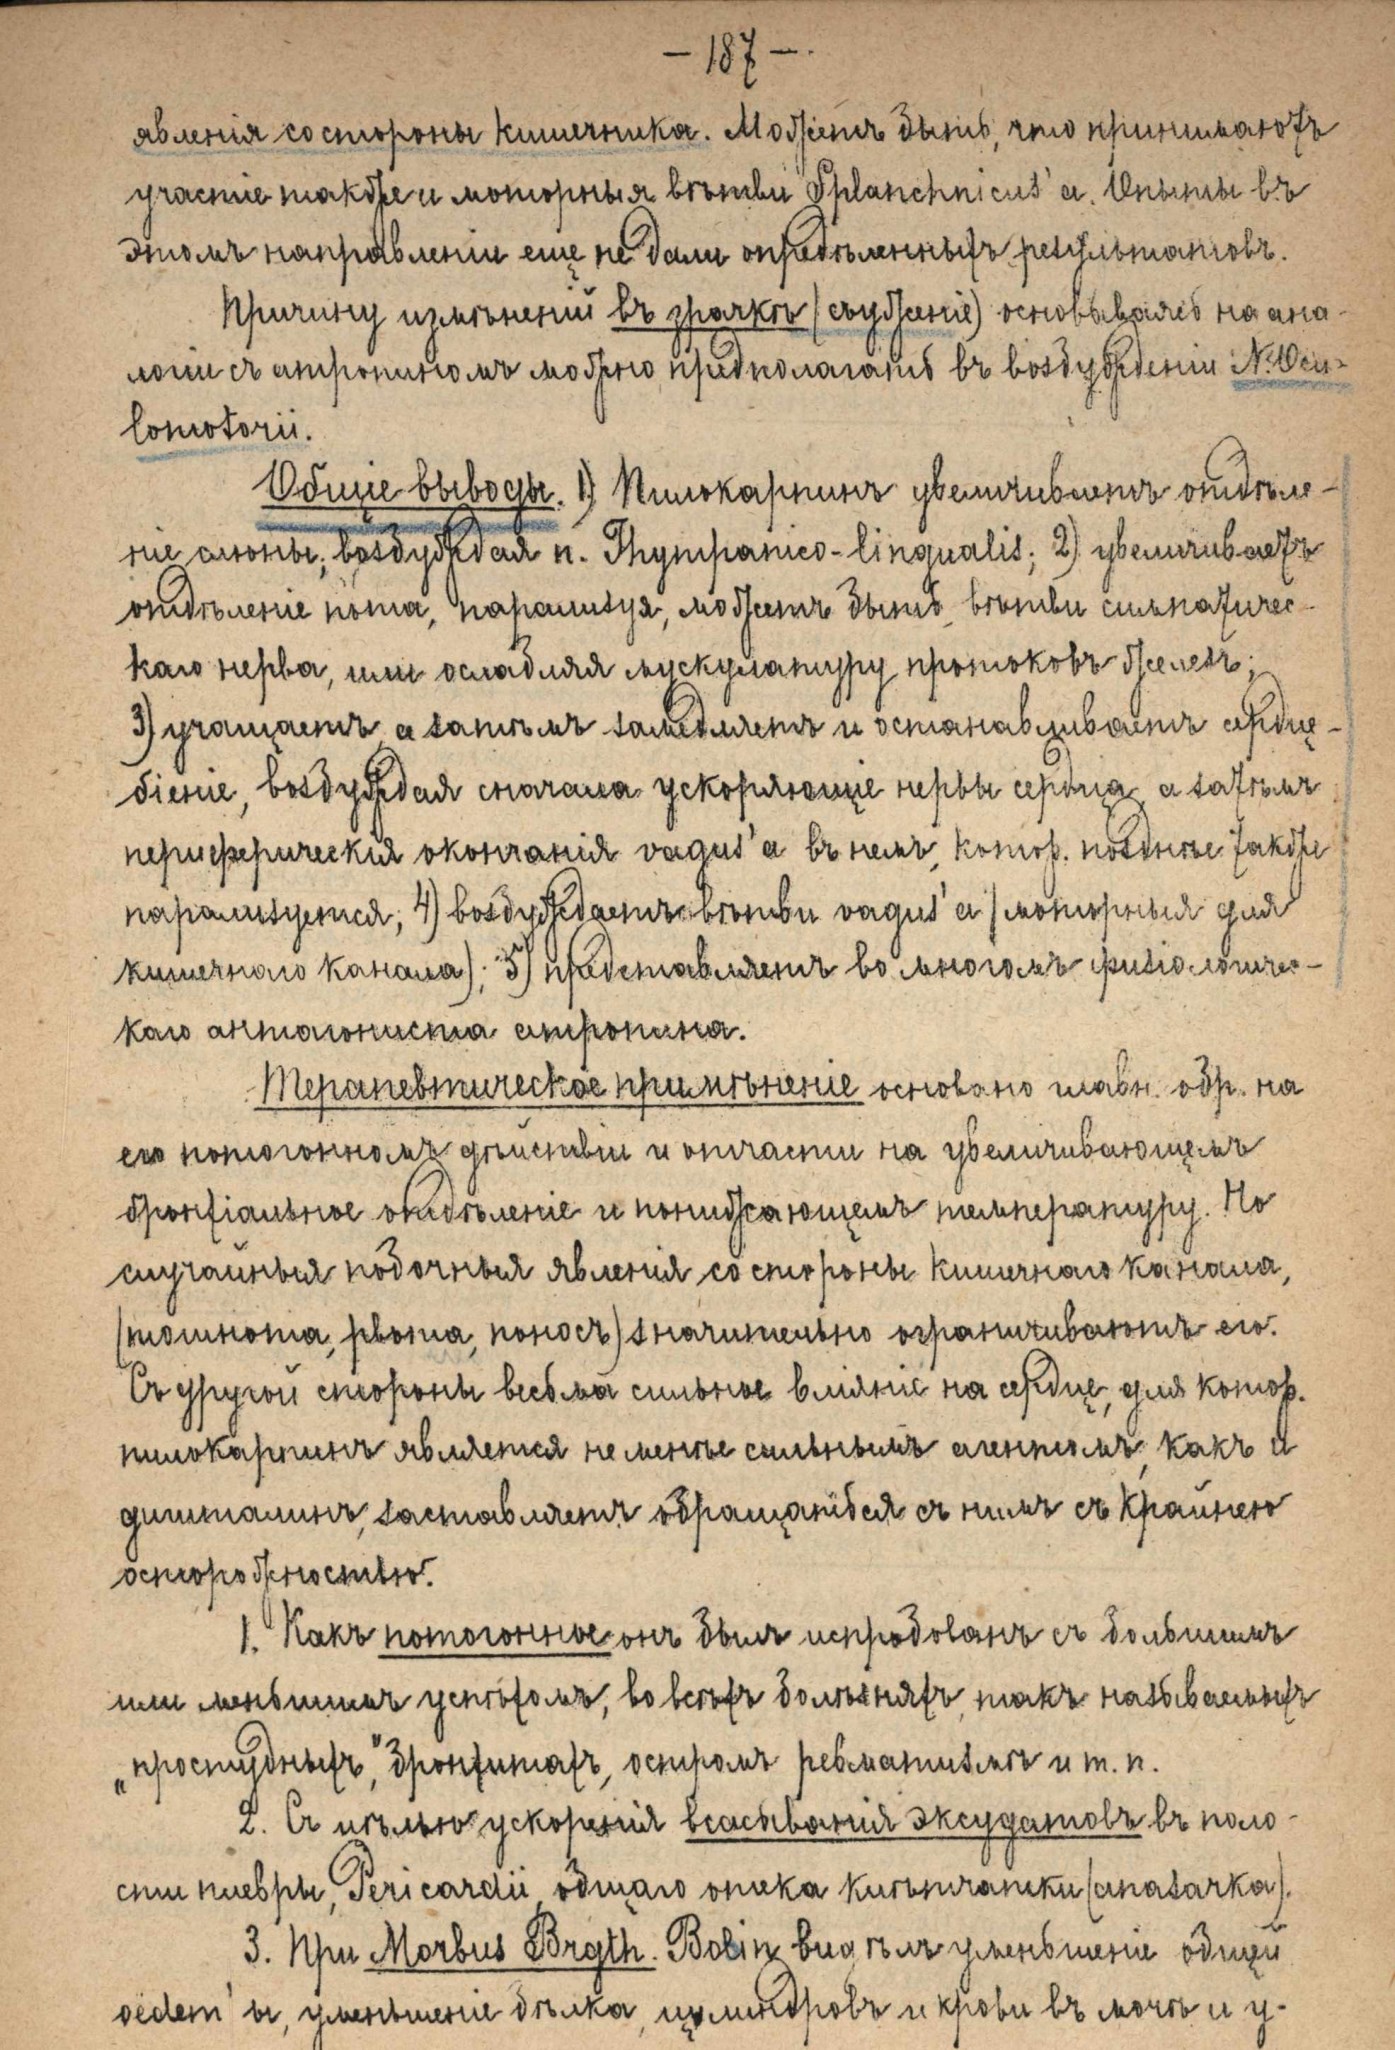 — 187 —
явленія со стороны кишечника. Можетъ быть, что принимаютъ
участіе также и моторныя вѣтви Splanchnicus'а. Опыты въ
этомъ направленіи еще не дали опредѣленныхъ результатовъ.
Причину измѣненій въ зрачкѣ (съуженіе) основываясь на ана-
логіи съ атропиномъ можно предполагать въ возбужденіи N. Ocu-
lomotorii.
Общіе выводы. 1) Пилокарпинъ увеличиваетъ отдѣле-
ніе слюны, возбуждая n. Thympanico-lingualis; 2) увеличиваетъ
отдѣленіе пота, парализуя, можетъ быть, вѣтви симпатичес-
каго нерва, или ослабляя мускулатуру протоковъ железъ;
3) учащаетъ, а затѣмъ замедляетъ и останавливаетъ сердце-
біеніе, возбуждая сначала ускоряющіе нервы сердца, а затѣмъ
периферическія окончанія vagus'а въ немъ, котор. позднѣе также
парализуется; 4) возбуждаетъ вѣтви vagus'а (моторныя для
кишечнаго канала); 5) представляетъ во многомъ физіологичес-
каго антагониста атропина.
Терапевтическое примѣненіе основано главн. обр. на
его потогонномъ дѣйствіи и отчасти на увеличивающемъ
бронхіальное отдѣленіе и понижающемъ температуру. Но
случайныя побочныя явленія со стороны кишечнаго канала,
(тошнота, рвота, поносъ) значительно ограничиваютъ его.
Съ другой стороны весьма сильное вліяніе на сердце, для котор.
пилокарпинъ является не менѣе сильнымъ агентомъ, какъ и
дигиталинъ, заставляетъ обращаться съ нимъ съ крайнею
осторожностью.
1. Какъ потогонное онъ былъ испробованъ съ большимъ
или меньшимъ успѣхомъ, во всѣхъ болѣзняхъ, такъ называемыхъ
„простудныхъ", бронхитахъ, остромъ ревматизмѣ и т. п.
2. Съ цѣлью ускоренія всасыванія эксудатовъ въ поло-
сти плевры, Pericardii, общаго отека клѣтчатки (аназарка).
3. При Morbus Brgth. Bolin видѣлъ уменьшеніе общей
oedem'ы, уменьшеніе бѣлка, цилиндровъ и крови въ мочѣ и у-